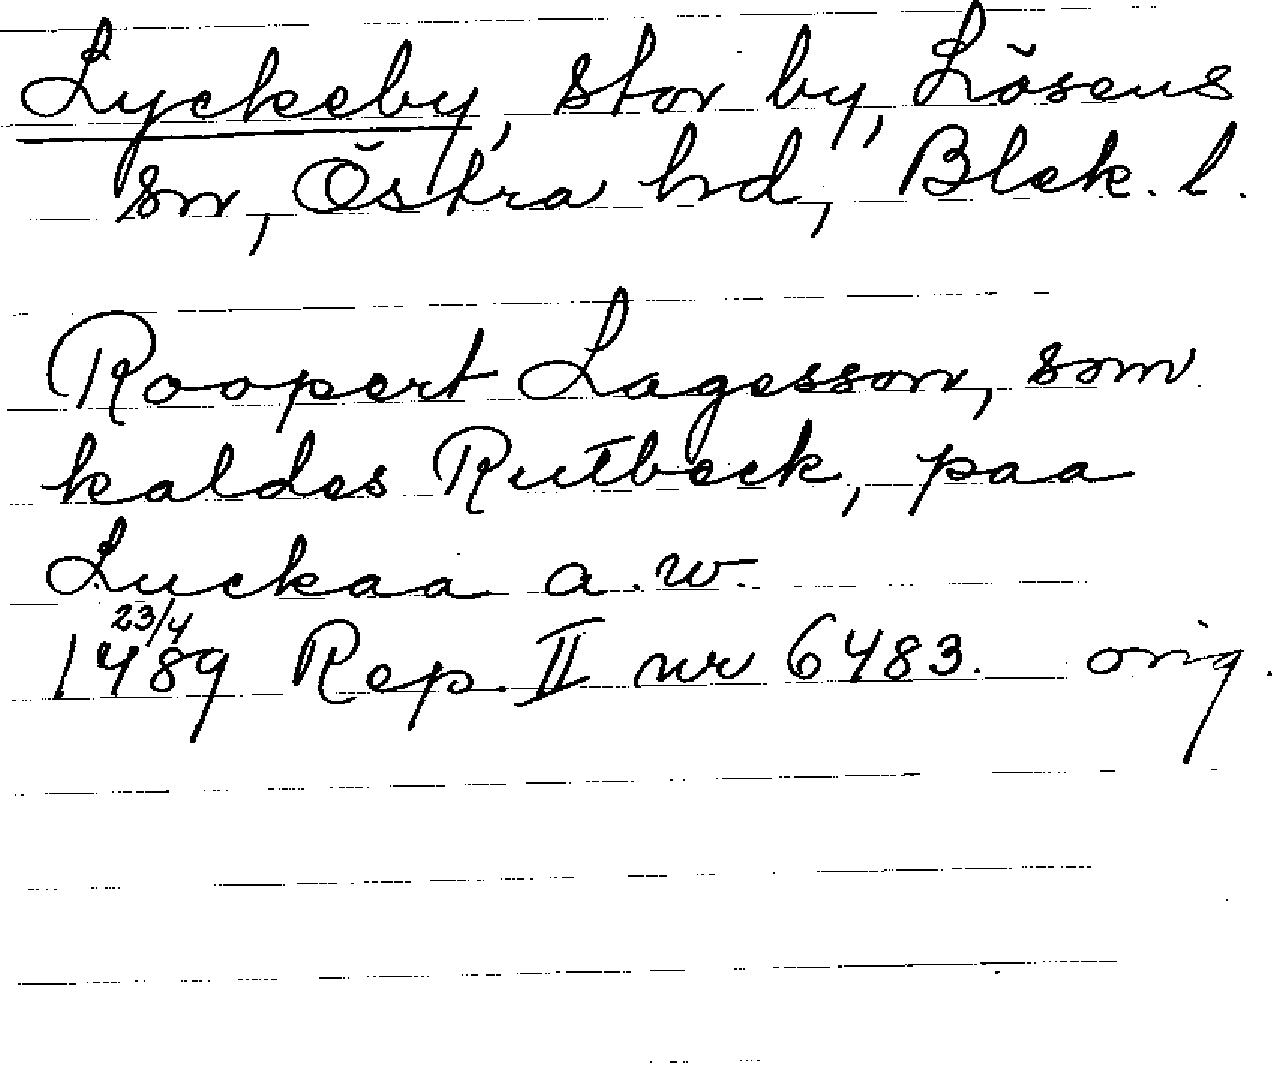 Lyckeby, stor by, Lösens
sn, Östra hd, Blek. l.
Roopert Lagesson, som
kaldes Rutbeck, paa
Luckaa a.w.
23/4
1489 Rep. II nr 6483. orig.